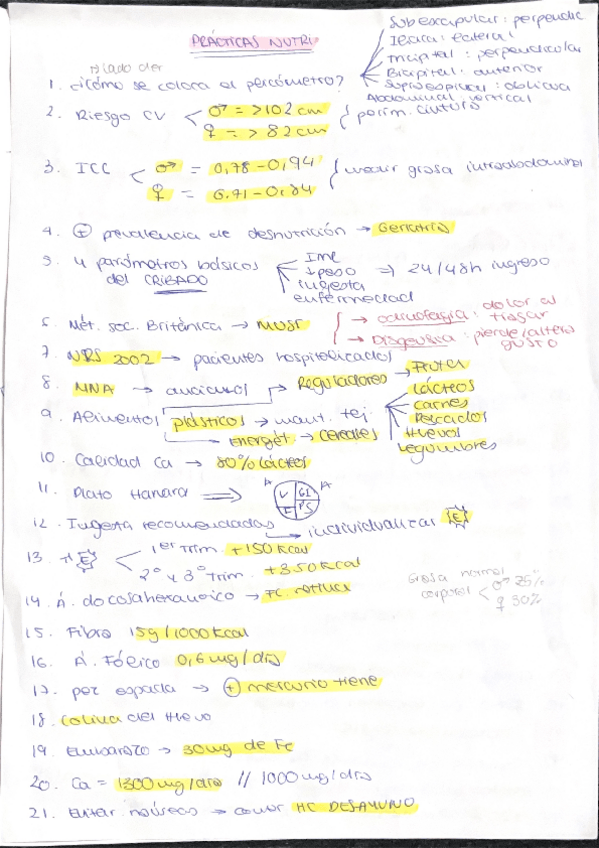 PRÁCTICAS NUTRI
Subescapular: perpendic
Ileaca: lateral
Tricipital: perpendicular
Bicipital: anterior
Supraespinal: oblicua
Abdominal: vertical
1. ¿Cómo se coloca el plicómetro?
2. Riesgo CV
♂ = >102 cm
♀ = > 82 cm
perím. cintura
3. ICC
♂ = 0,78-0,94
♀ = 0.71-0.84
medir grasa intraabdominal
4. + prevalencia de desnutrición → Geriatría
5. 4 parámetros básicos del CRIBADO
IMC
↓ peso
ingesta
enfermedad
⇒ 24/48h ingreso
6. Mét. soc. Británica → MUST
→ odinofagia: dolor al tragar
→ Disgeusia: pierde/altera gusto
7. NRS 2002 → pacientes hospitalizados
8. MNA → ancianos
→ Reguladores → Fruta
9. Alimentos plásticos → mant. tej
Lácteos
carnes
Pescados
Huevos
Legumbres
→ energét. → cereales
10. Calidad Ca → 80% lácteos
11. Plato Harvard ⇒
12. Ingesta recomendadas → individualizar E
13. ↑ E
1er Trim. +150 Kcal
2º y 3º Trim. +350 Kcal
Grasa normal corporal
♂ 25%
♀ 30%
14. Á. docosahexanoico →
15. Fibra 15g/1000 Kcal
16. Á. Fólico 0,6 mg/día
17. pez espada → + mercurio tiene
18. Colina del Huevo
19. Embarazo → 30mg de Fe
20. Ca = 1300 mg/día // 1000 mg/día
21. Evitar náuseas → comer HC DESAYUNO